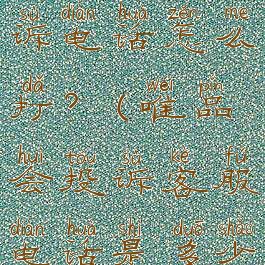 sù diàn huà zěn me
诉电话怎么
dǎ wéi pǐn
打?(唯品
huì tóu sù kè fú
会投诉客服
diàn huà shì duō shǎo
电话是多少